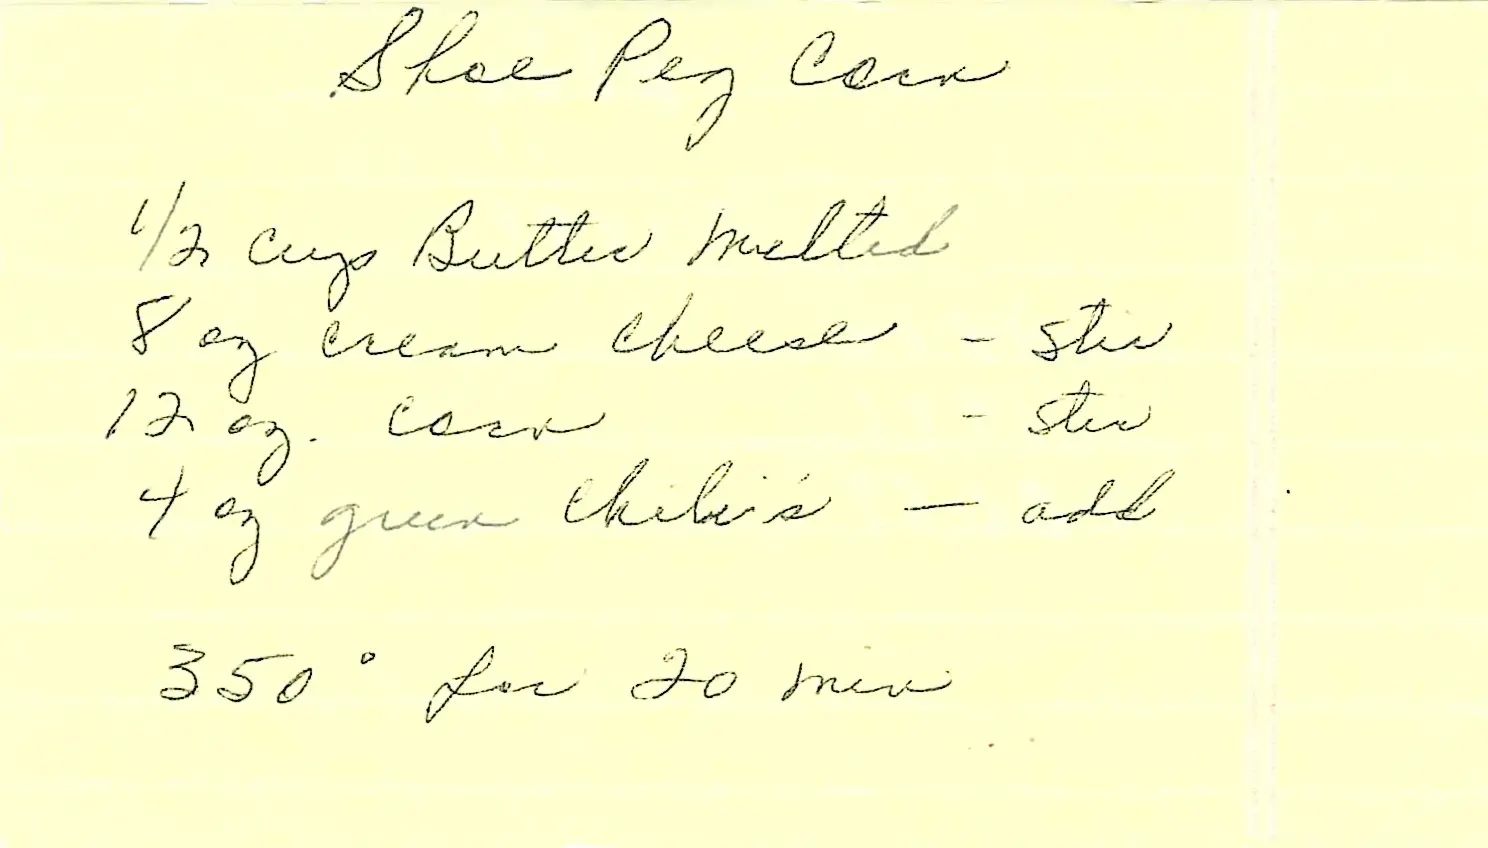 Shoe Peg Corn
1/2 cups Butter melted
8 oz cream cheese - stir
12 oz. corn - stir
4 oz green chili's - add
350° for 20 min